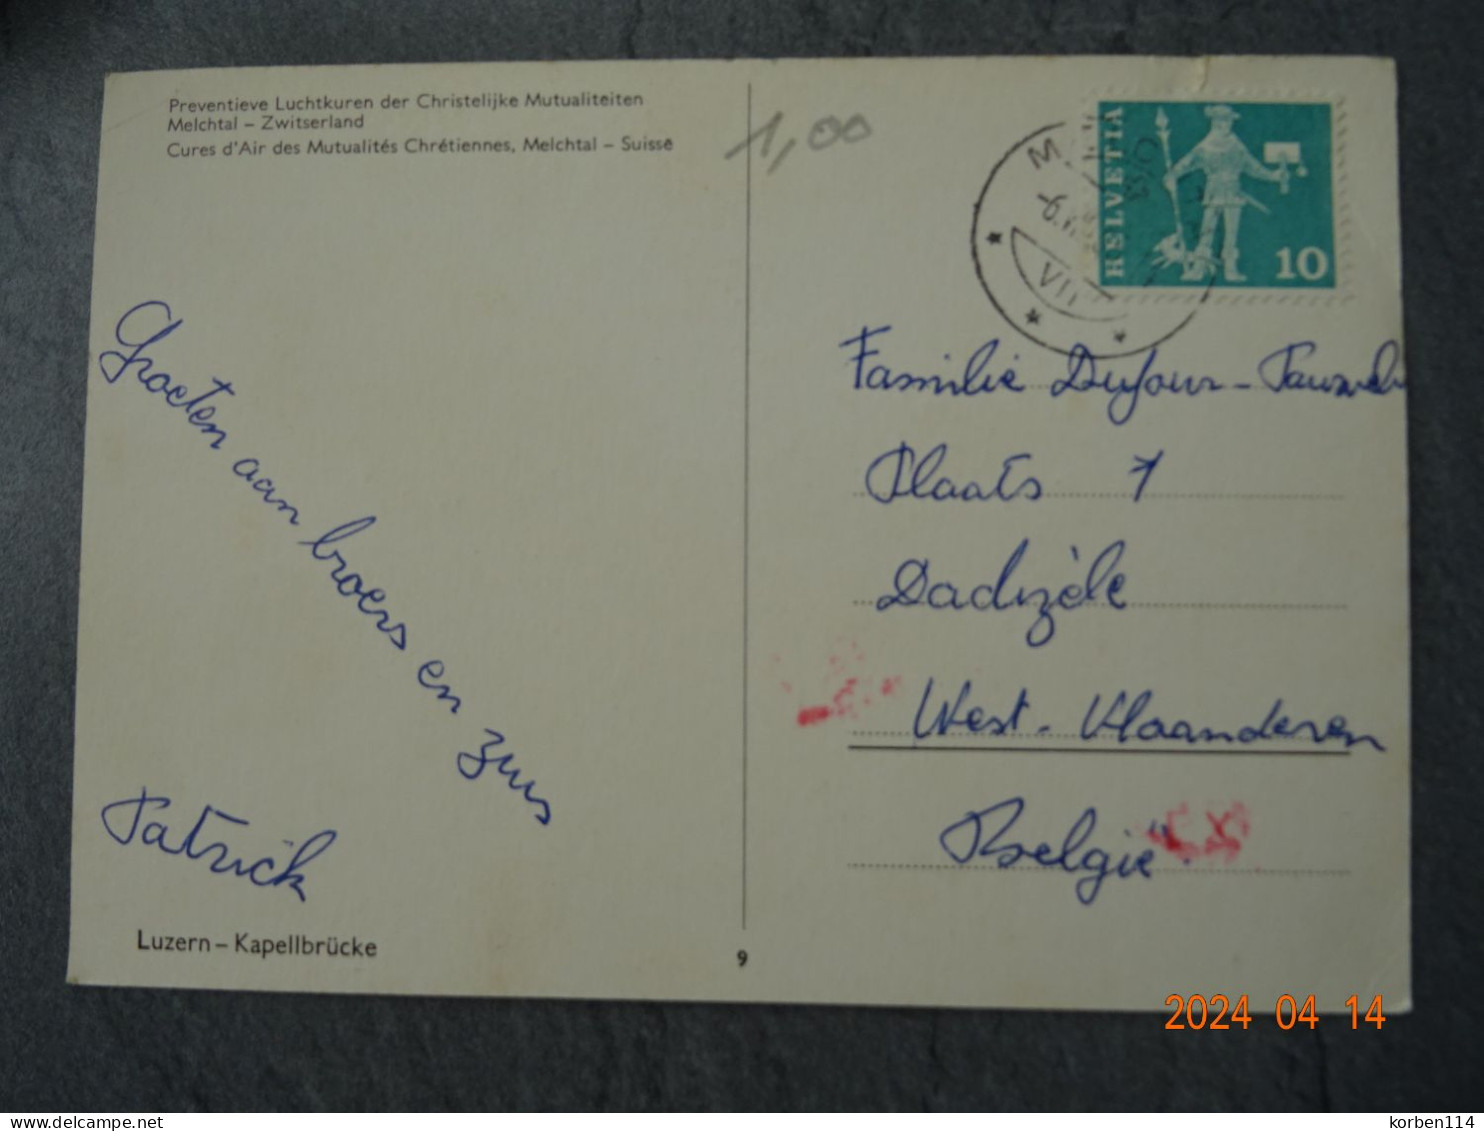 Preventieve Luchtkuren der Christelijke Mutualiteiten
Melchtal – Zwitserland
Cures d'Air des Mutualités Chrétiennes, Melchtal – Suisse
1,00
HELVETIA
10
VII
Groeten aan broers en zus
Patrick
Luzern – Kapellbrücke
9
Familie Dufour -
Plaats 1
Dadizèle
West-Vlaanderen
België.
2024 04 14
delcampe.net
korben114